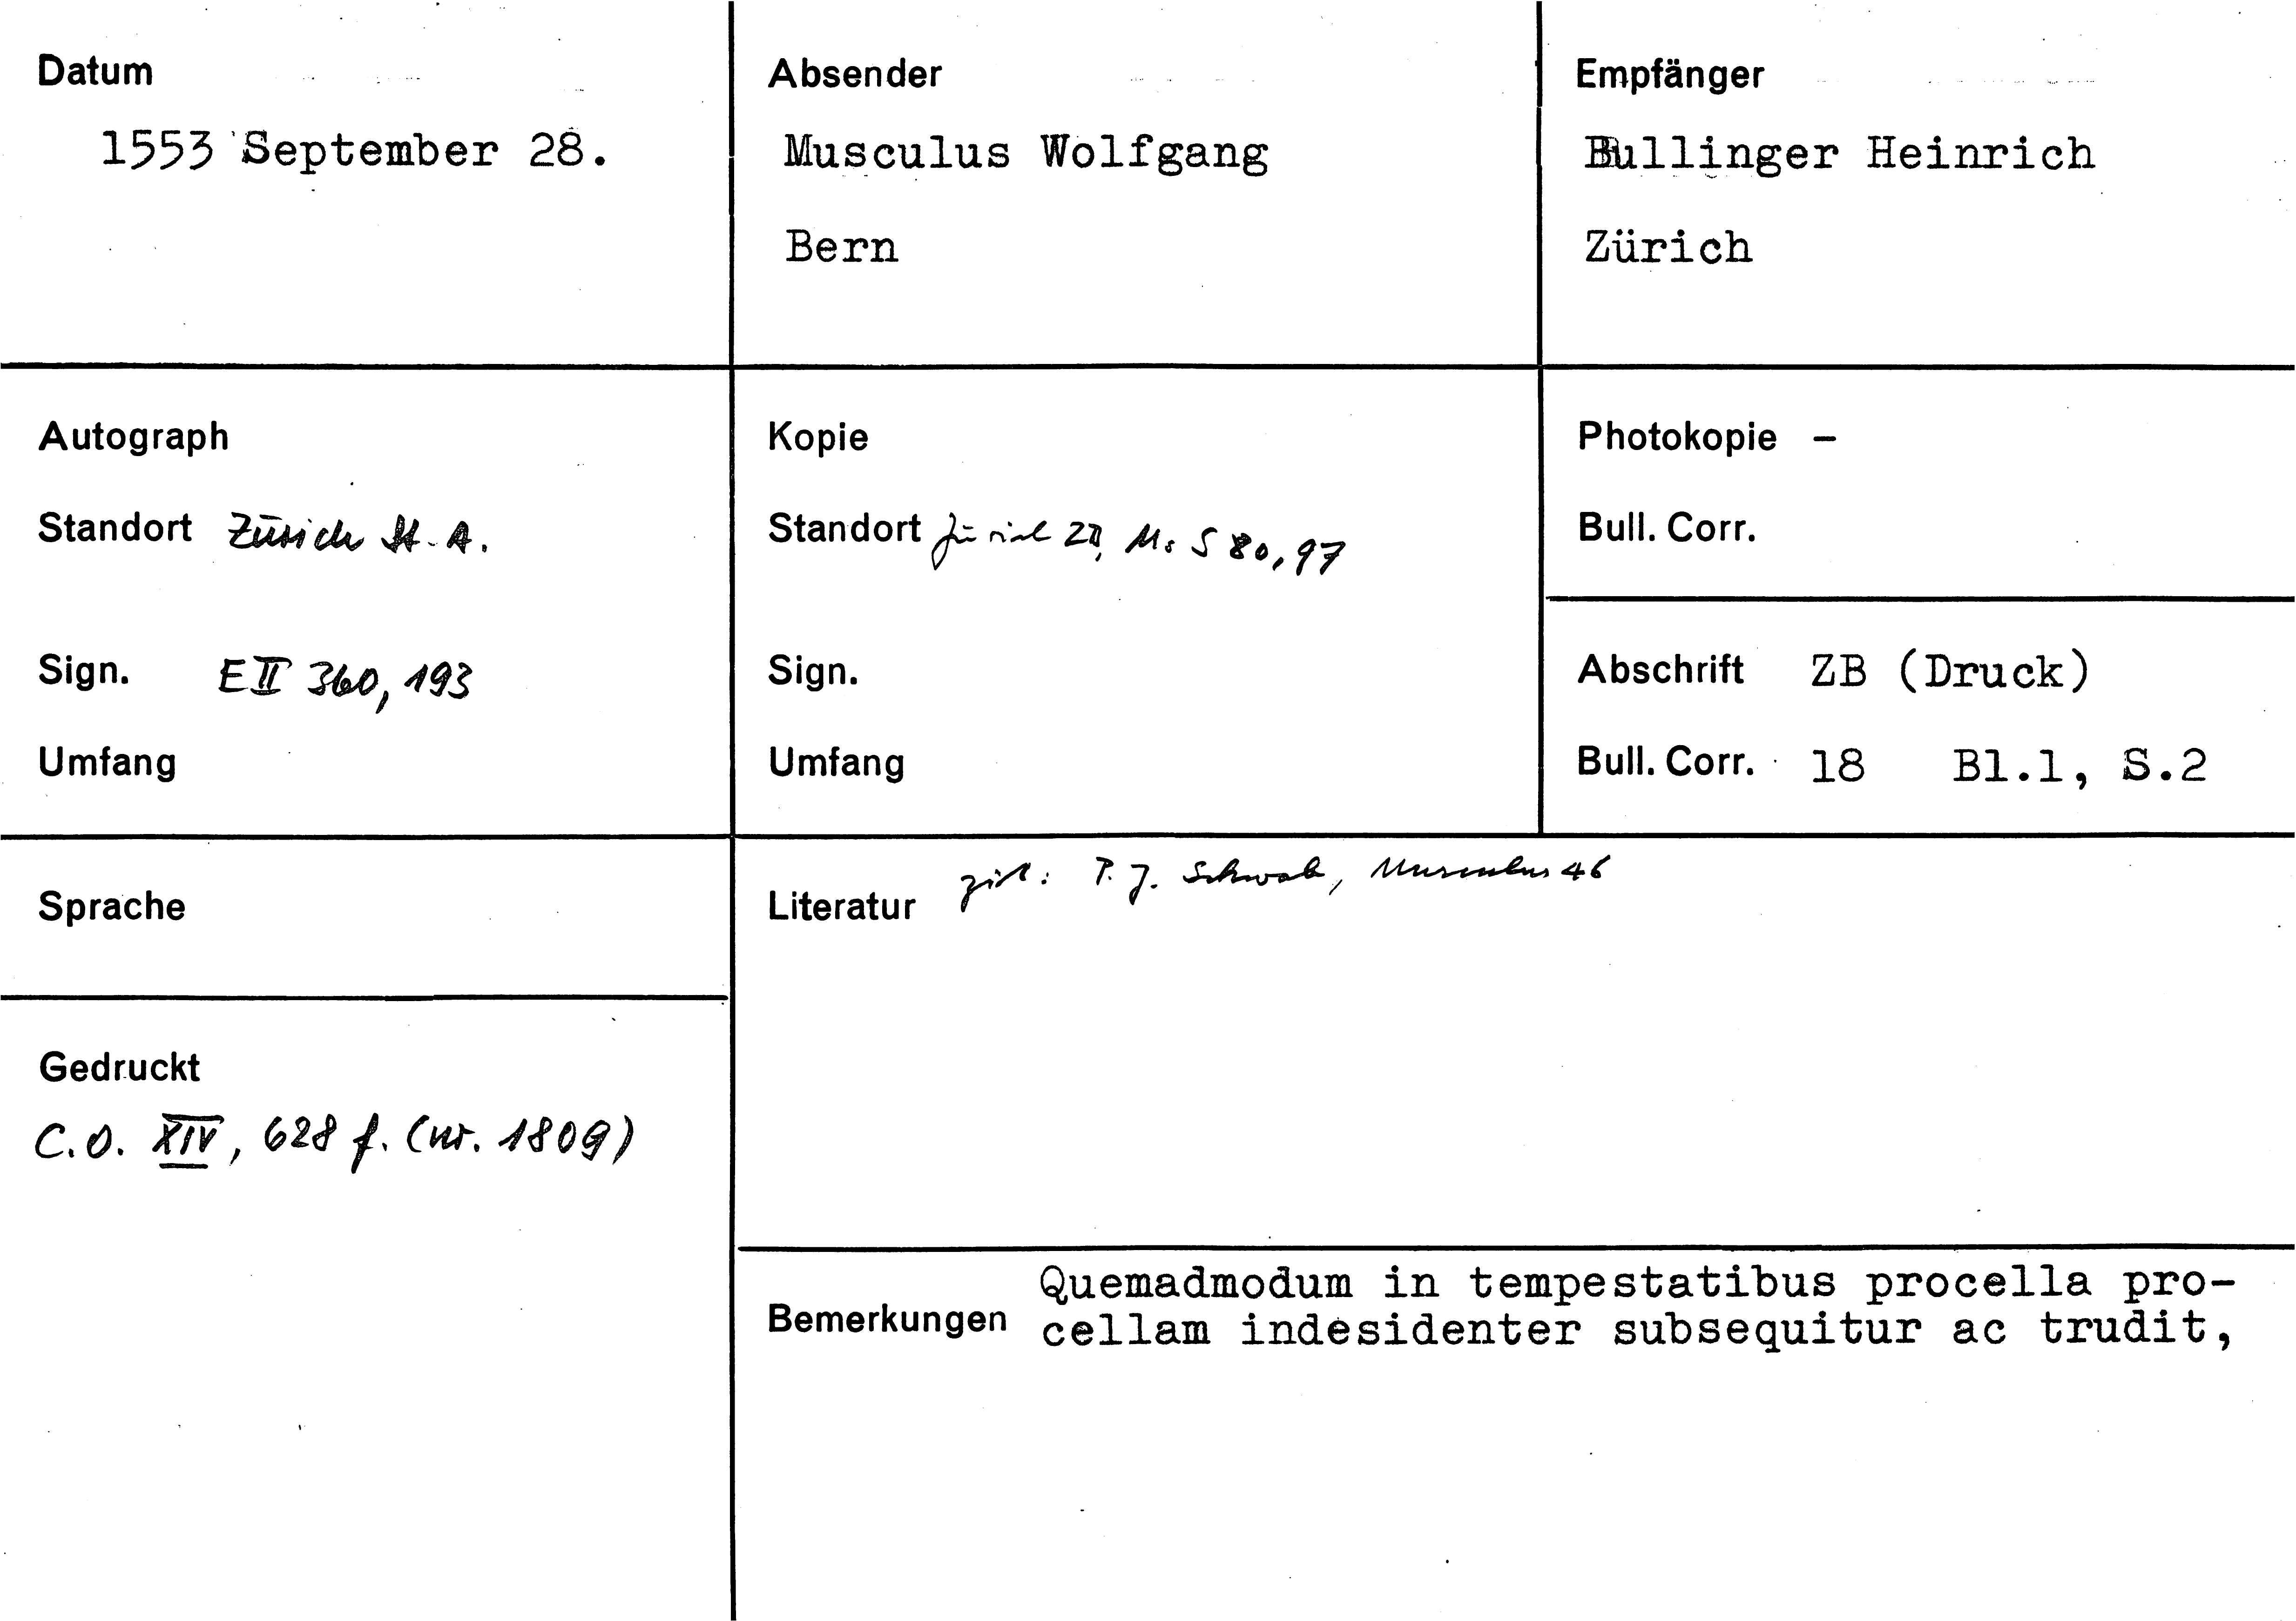 Datum
1553 September 28.
Absender
Musculus Wolfgang
Bern
Empfänger
Bullinger Heinrich
Zürich
Autograph
Standort Zürich St. A.
Sign. E II 360, 193
Umfang
Kopie
Standort Zürich ZB, Ms S 80, 97
Sign.
Umfang
Photokopie -
Bull. Corr.
Abschrift ZB (Druck)
Bull. Corr. 18 Bl.1, S.2
Sprache
Gedruckt
C.O. XIV, 628 f. (nr. 1809)
Literatur zit: P. J. Schwab, Musculus 46
Bemerkungen
Quemadmodum in tempestatibus procella pro-
cellam indesidenter subsequitur ac trudit,